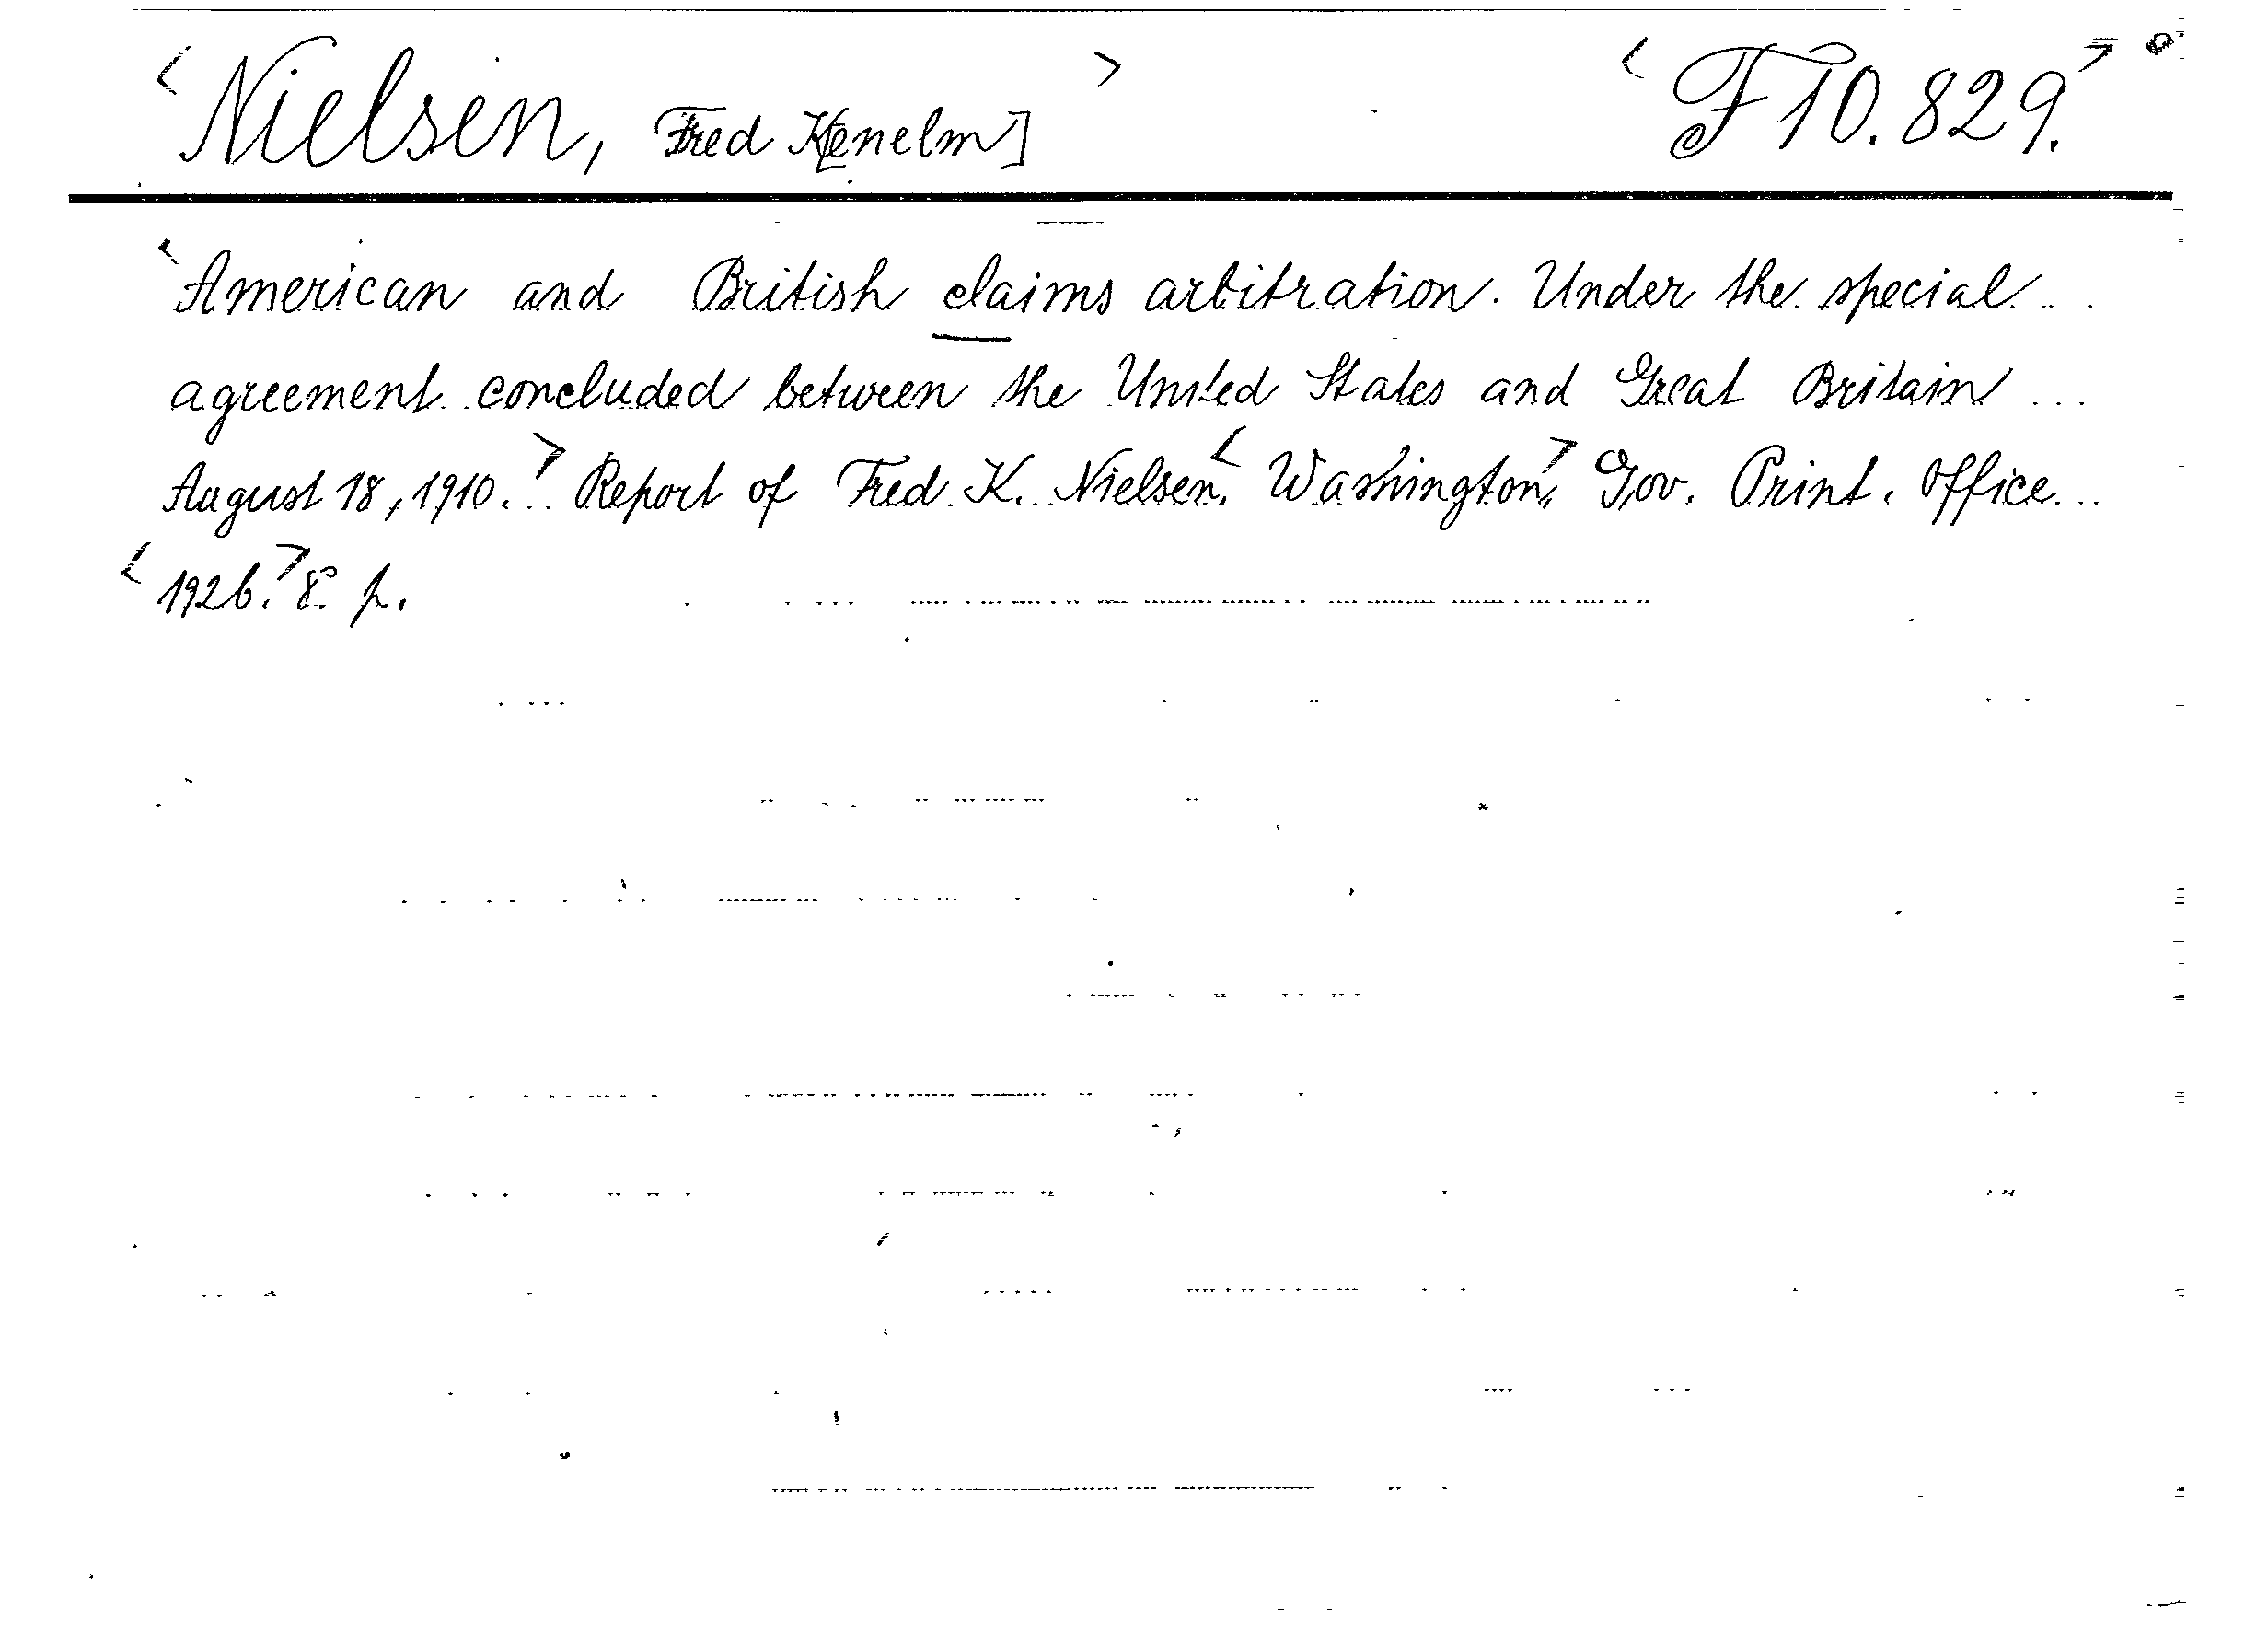 <Nielsen, Fred K[enelm]> <F 10.829.>
<American and British claims arbitration. Under the special
agreement concluded between the United States and Great Britain
August 18, 1910.> Report of Fred K. Nielsen. <Washington>, Gov. Print. Office
<1926.> 8° p.